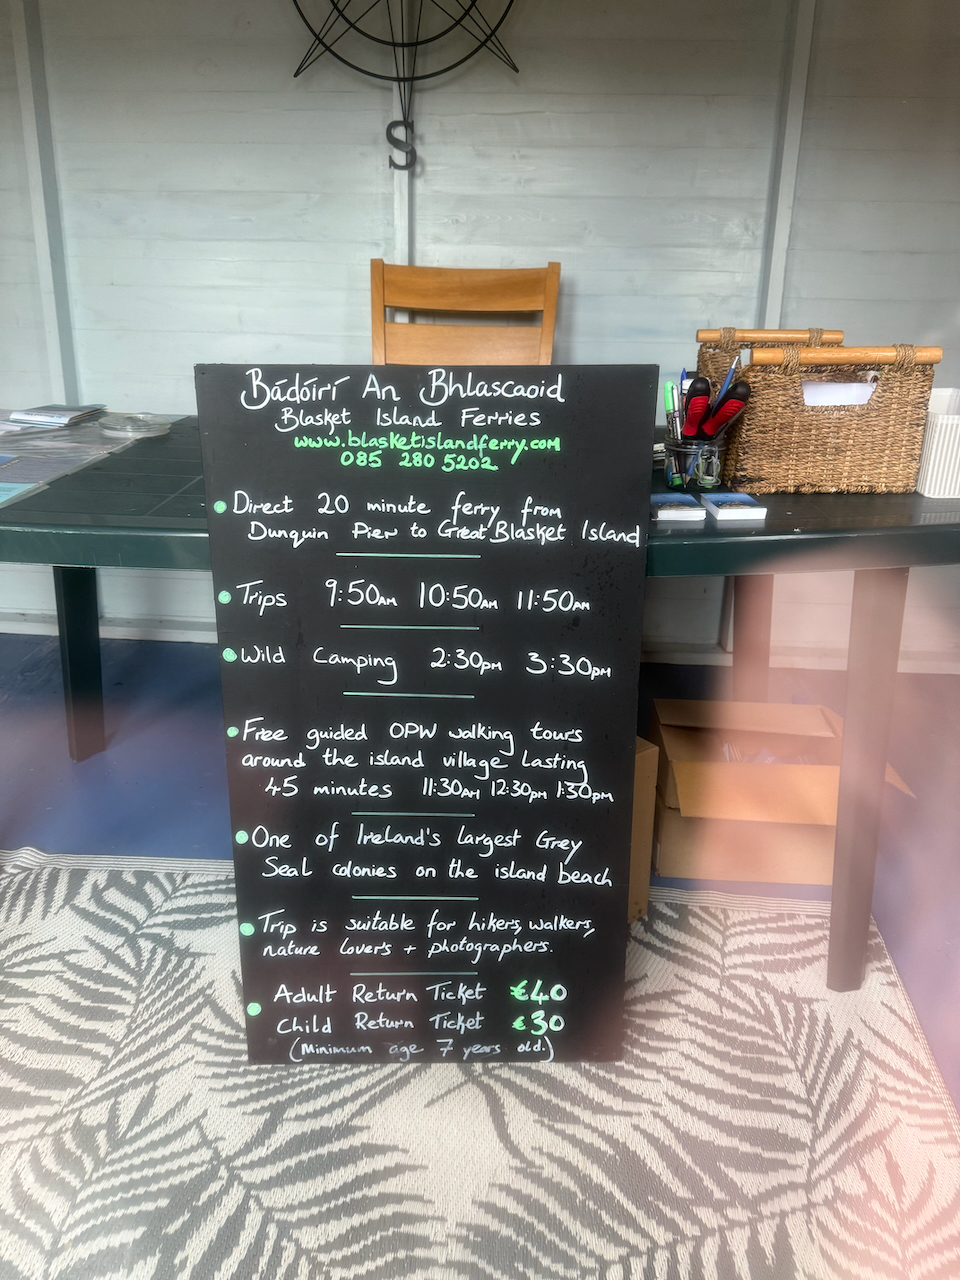 S
Bádóirí An Bhlascaoid
Blasket Island Ferries
www.blasketislandferry.com
085 280 5202
Direct 20 minute ferry from
Dunquin Pier to Great Blasket Island
Trips 9:50AM 10:50AM 11:50AM
Wild Camping 2:30pm 3:30pm
Free guided OPW walking tours
around the island village lasting
45 minutes 11:30AM 12:30pm 1:30pm
One of Ireland's largest Grey
Seal colonies on the island beach
Trip is suitable for hikers, walkers,
nature lovers + photographers.
Adult Return Ticket €40
Child Return Ticket €30
(Minimum age 7 years old.)